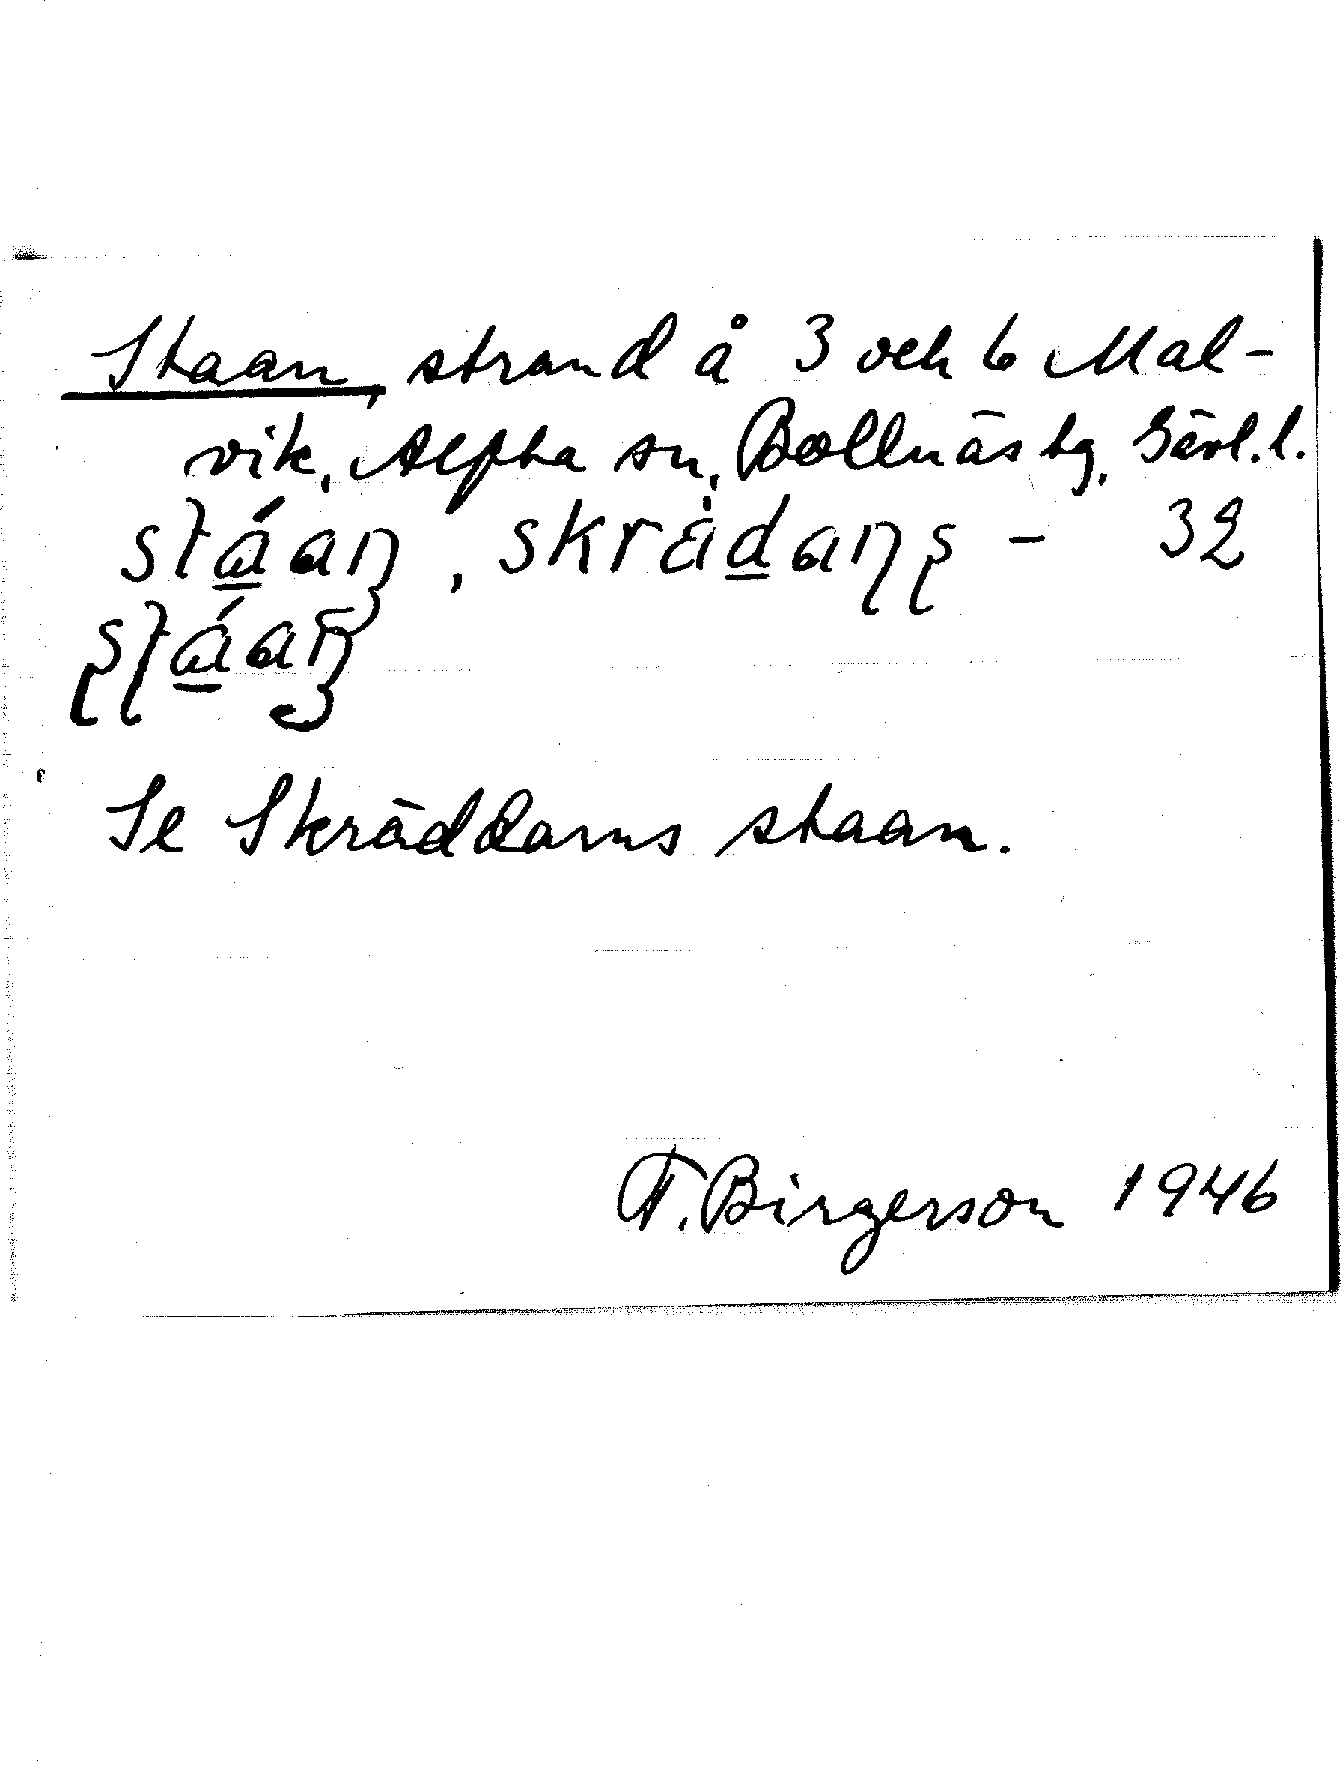 Staan, strand å 3 och 6 Mal-
vik, Alfta sn, Bollnäs tg, Gävl.l.
stáaŋ, skrädaɳʂ - 32
ʂʈáaŋ
Se Skräddarns staan.
F. Birgerson 1946